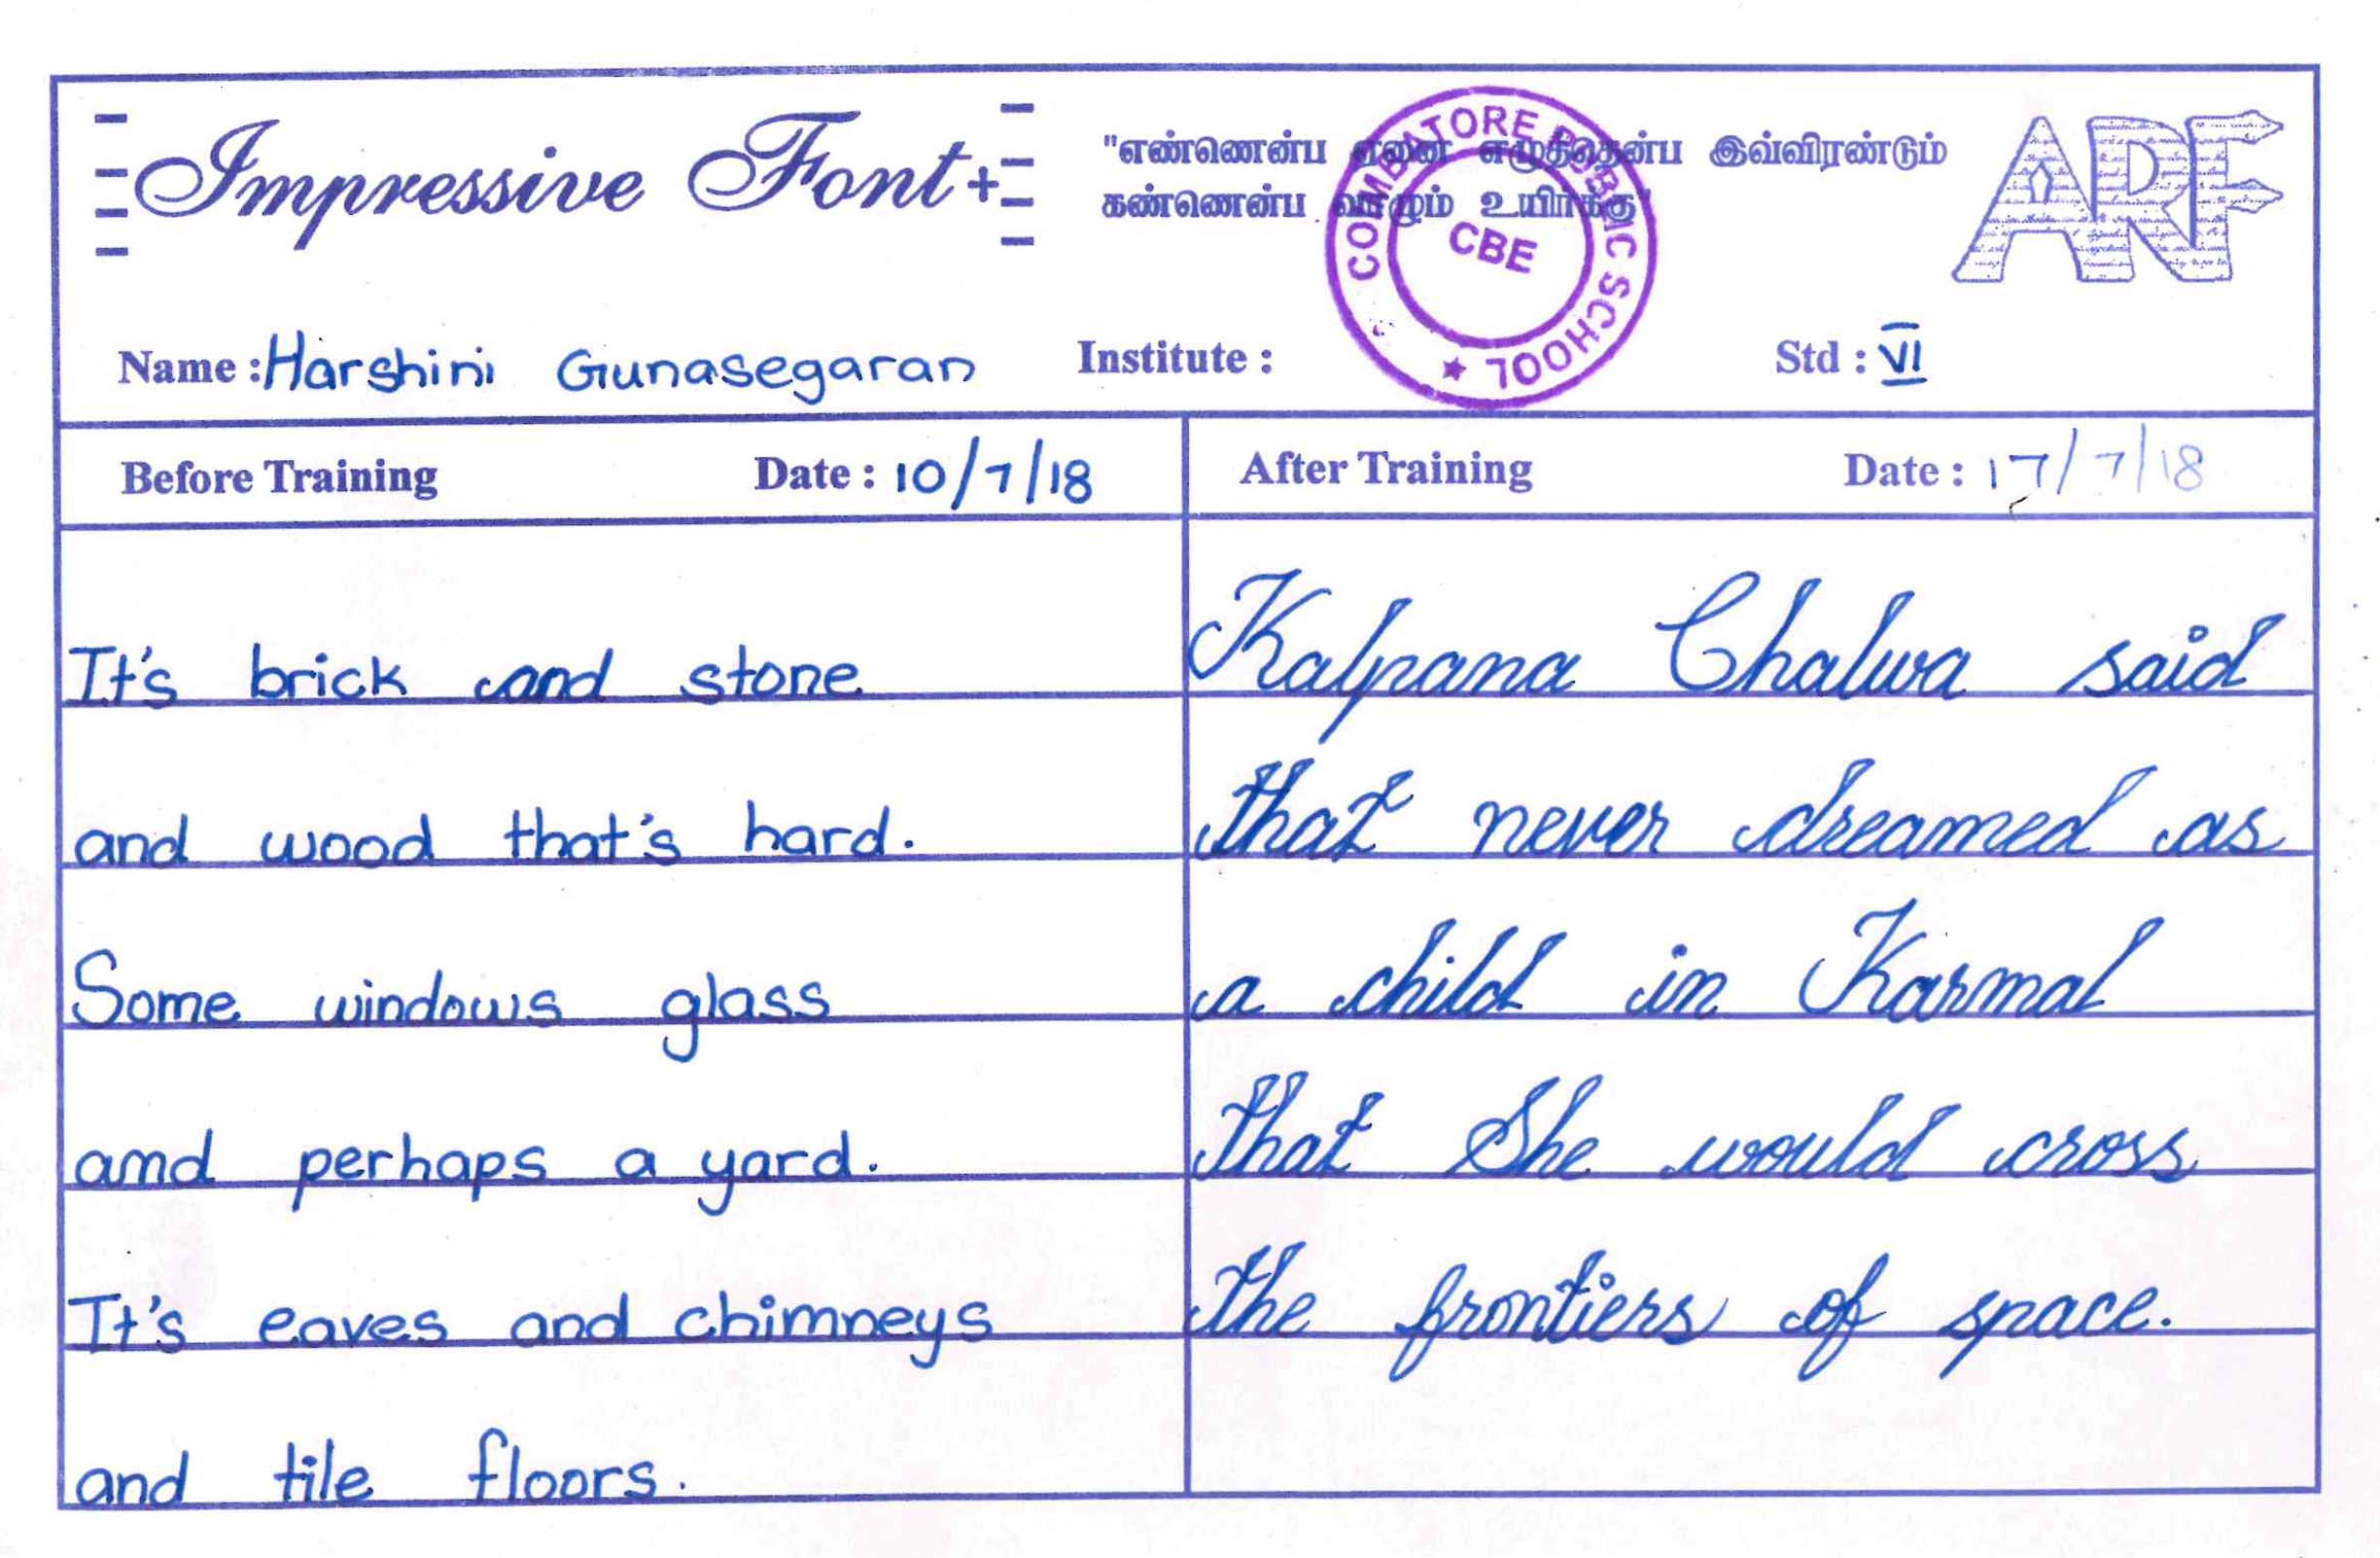 Impressive Font+
"எண்ணென்ப ஏனை எழுத்தென்ப இவ்விரண்டும்
கண்ணென்ப வாழும் உயிர்க்கு"
ARF
COMBATORE PUBLIC SCHOOL
CBE
Name : Harshini Gunasegaran Institute : Std : VI
Before Training Date : 10/7/18
It's brick and stone
and wood that's hard.
Some windows glass
amd perhaps a yard.
It's eaves and chimneys
and tile floors.
After Training Date : 17/7/18
Kalpana Chalwa said
that never dreamed as
a child in Karmal
that She would cross
the frontiers of space.